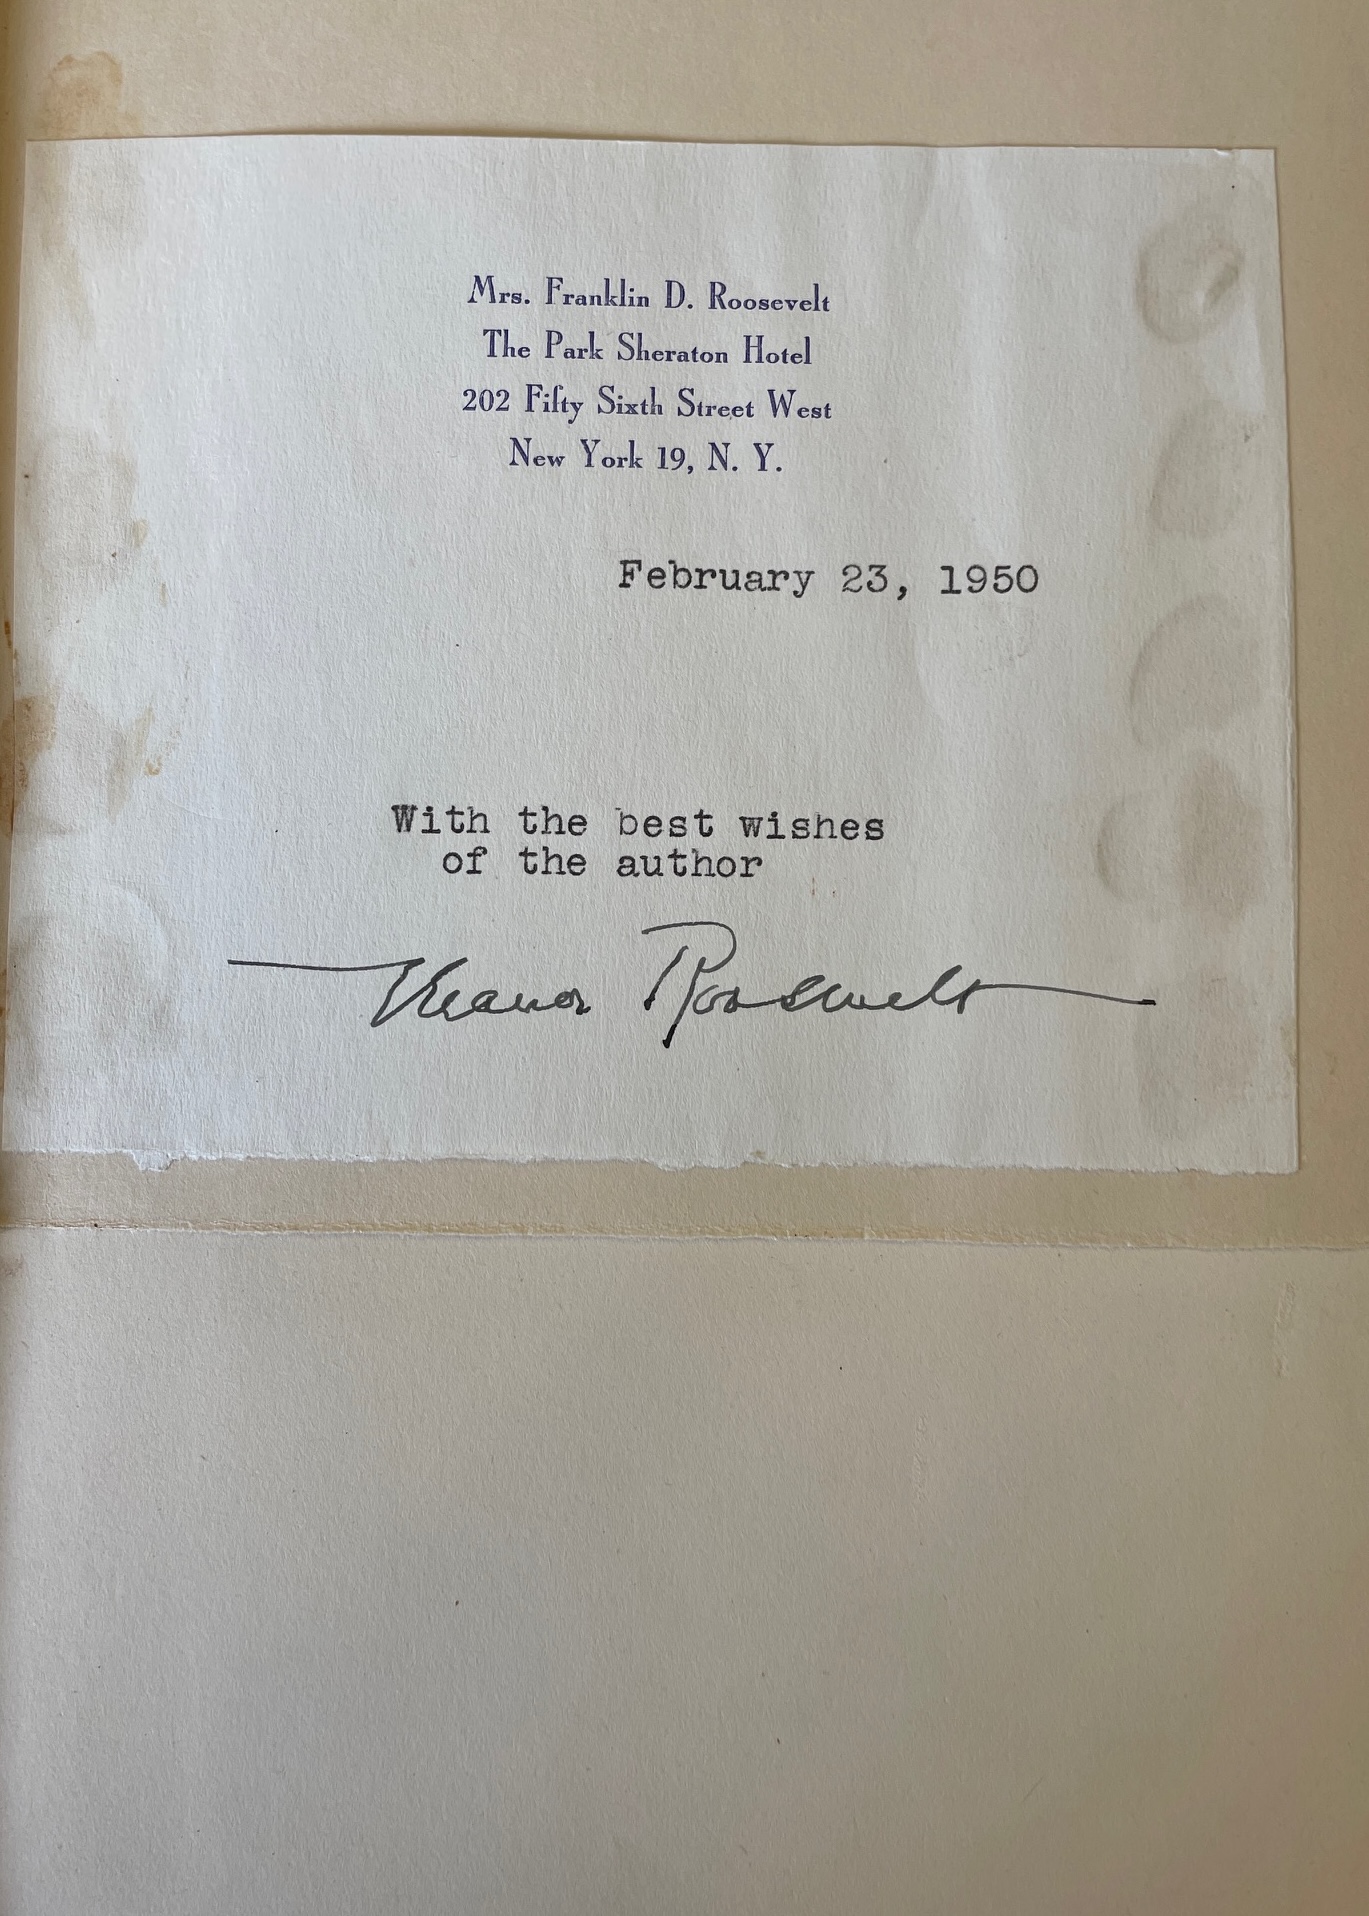 Mrs. Franklin D. Roosevelt
The Park Sheraton Hotel
202 Fifty Sixth Street West
New York 19, N. Y.
February 23, 1950
With the best wishes
of the author
Eleanor Roosevelt